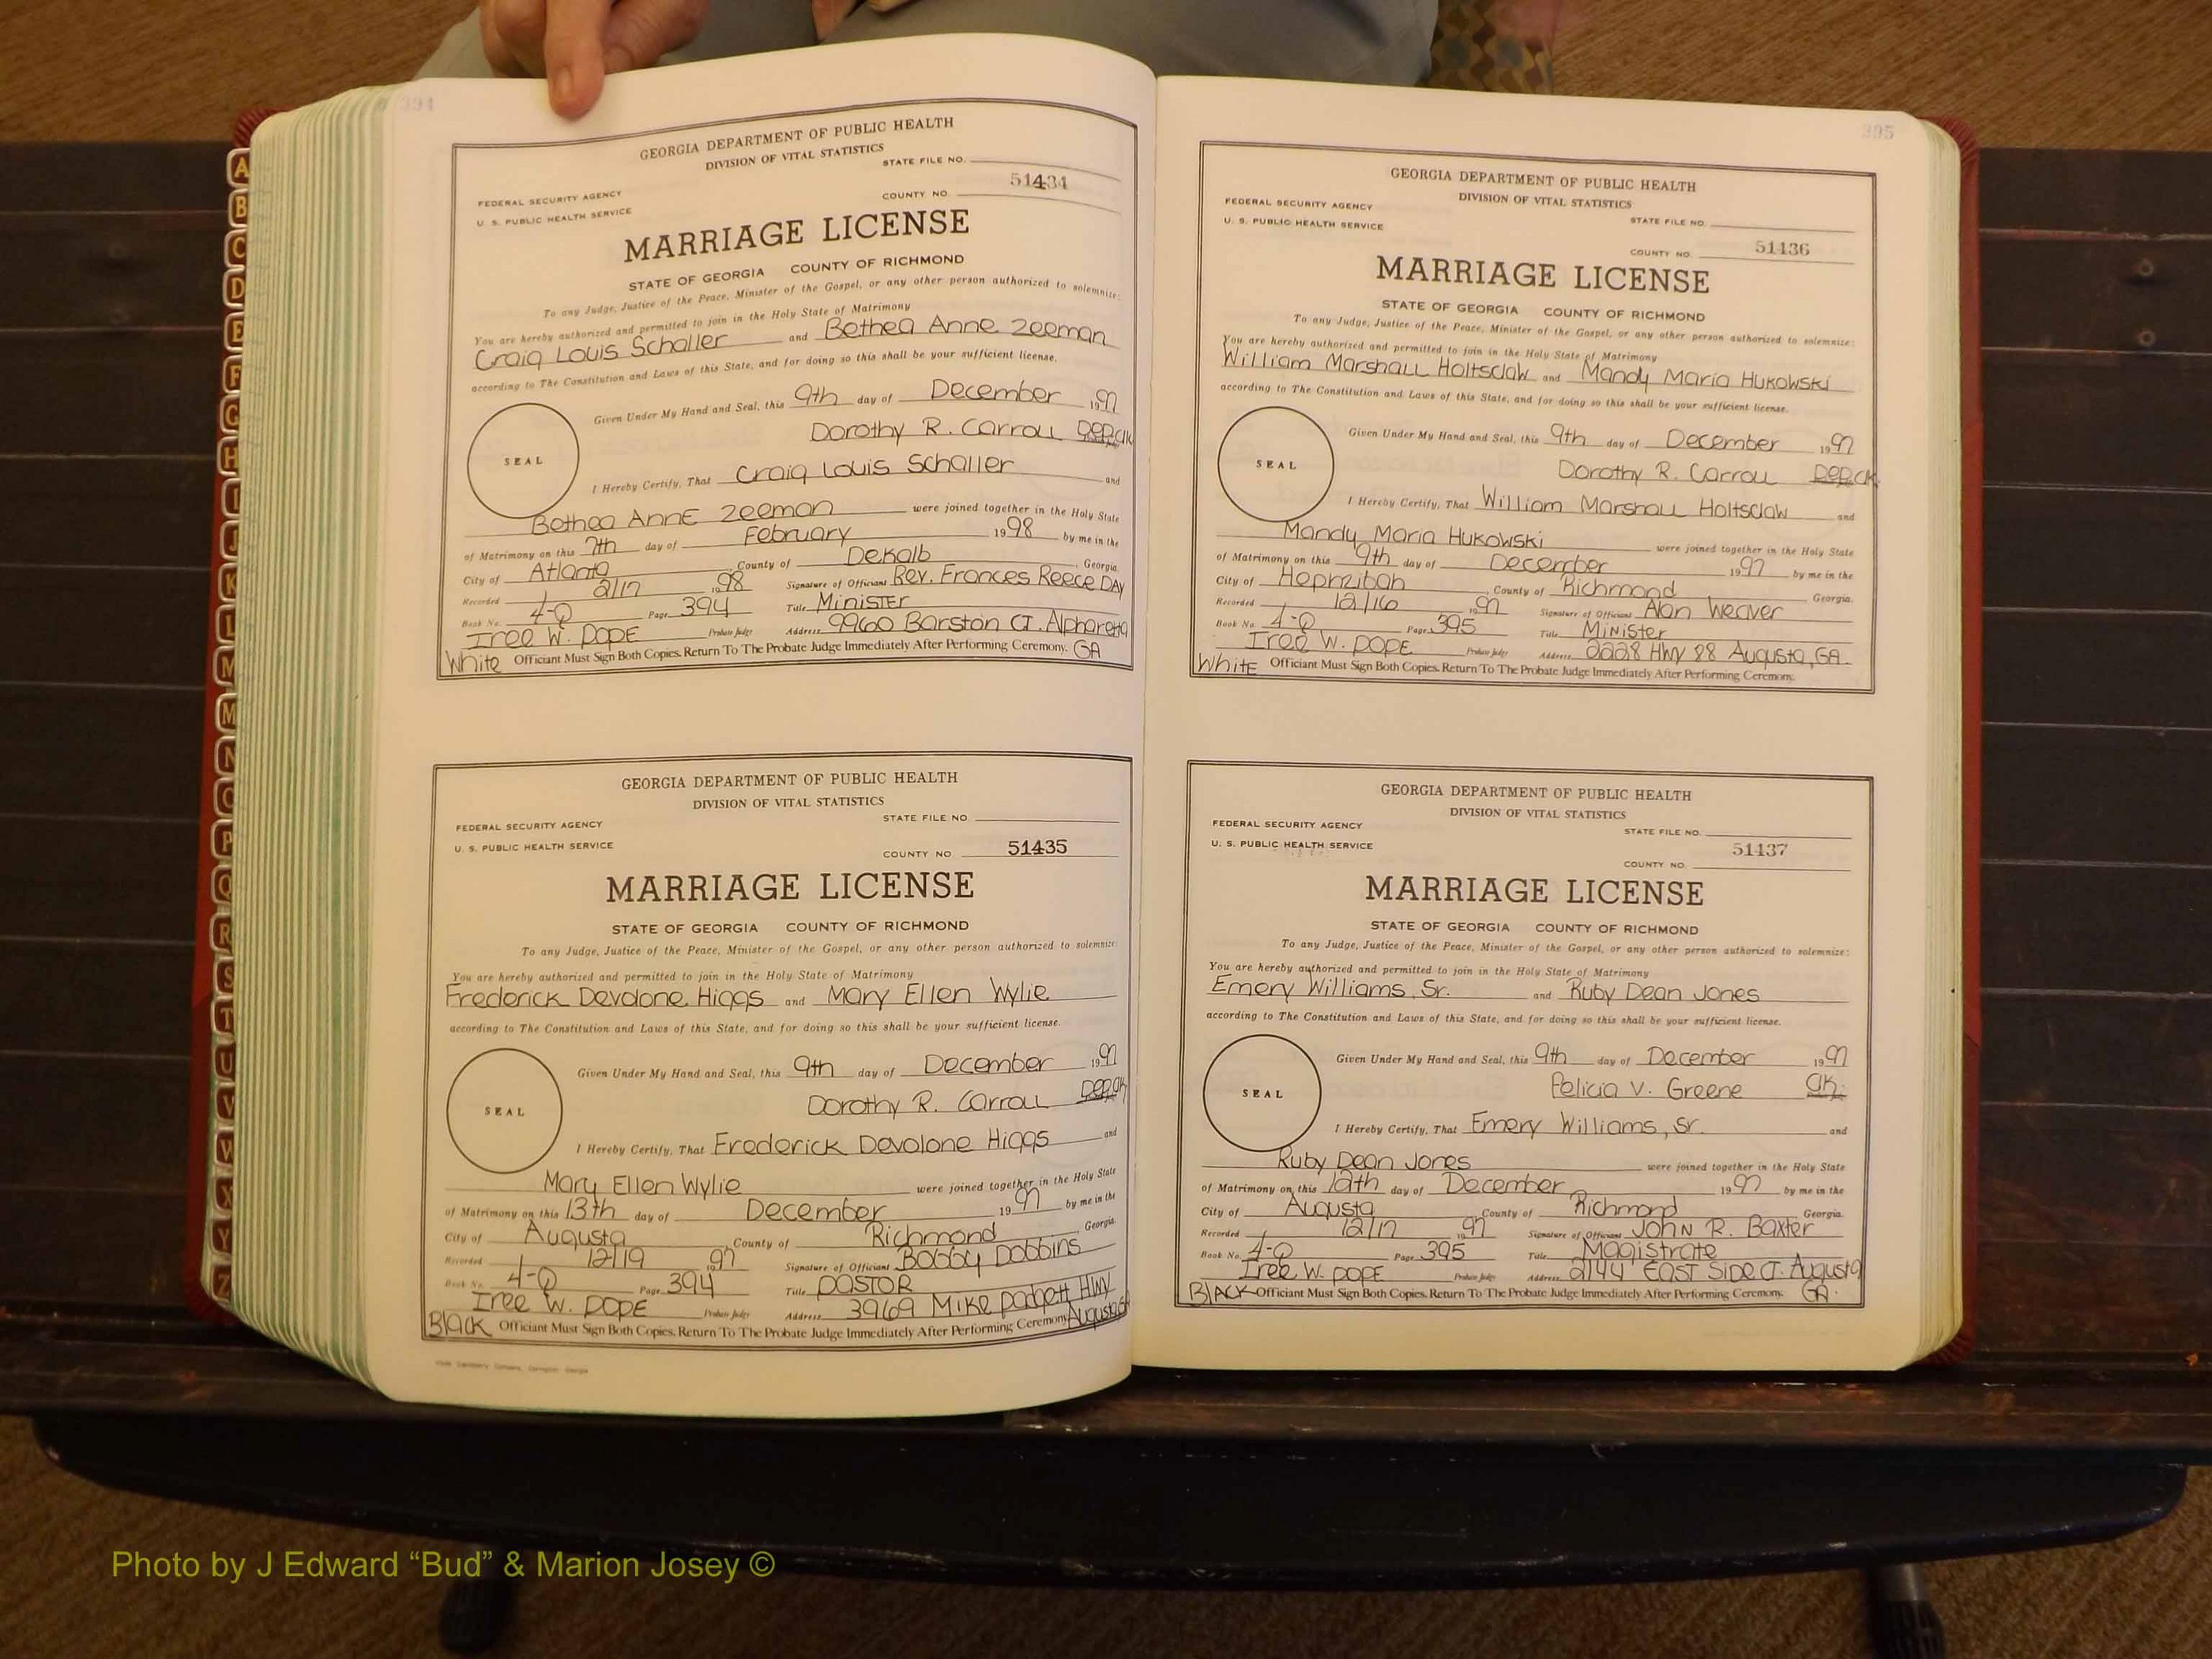 394
GEORGIA DEPARTMENT OF PUBLIC HEALTH
DIVISION OF VITAL STATISTICS
STATE FILE NO.
FEDERAL SECURITY AGENCY
COUNTY NO. 51434
U. S. PUBLIC HEALTH SERVICE
MARRIAGE LICENSE
STATE OF GEORGIA COUNTY OF RICHMOND
To any Judge, Justice of the Peace, Minister of the Gospel, or any other person authorized to solemnize:
You are hereby authorized and permitted to join in the Holy State of Matrimony
Craig Louis Schaller and Bethea Anne Zeeman
according to The Constitution and Laws of this State, and for doing so this shall be your sufficient license.
Given Under My Hand and Seal, this 9th day of December 1997
Dorothy R. Carroll Dep.Clk
SEAL
I Hereby Certify, That Craig Louis Schaller and
Bethea Anne Zeeman were joined together in the Holy State
of Matrimony on this 7th day of February 1998 by me in the
City of Atlanta, County of DeKalb, Georgia.
Recorded 2/17 1998 Signature of Officiant Rev. Frances Reece Day
Book No. 4-Q Page 394 Title Minister
Iree W. Pope Probate Judge Address 9960 Barston Ct. Alpharetta
White Officiant Must Sign Both Copies. Return To The Probate Judge Immediately After Performing Ceremony. GA
GEORGIA DEPARTMENT OF PUBLIC HEALTH
DIVISION OF VITAL STATISTICS
STATE FILE NO.
FEDERAL SECURITY AGENCY
U. S. PUBLIC HEALTH SERVICE
COUNTY NO. 51435
MARRIAGE LICENSE
STATE OF GEORGIA COUNTY OF RICHMOND
To any Judge, Justice of the Peace, Minister of the Gospel, or any other person authorized to solemnize:
You are hereby authorized and permitted to join in the Holy State of Matrimony
Frederick Devolone Higgs and Mary Ellen Wylie
according to The Constitution and Laws of this State, and for doing so this shall be your sufficient license.
Given Under My Hand and Seal, this 9th day of December 1997
Dorothy R. Carroll Dep.Clk
SEAL
I Hereby Certify, That Frederick Devolone Higgs and
Mary Ellen Wylie were joined together in the Holy State
of Matrimony on this 13th day of December 1997 by me in the
City of Augusta, County of Richmond, Georgia.
Recorded 12/19 1997 Signature of Officiant Bobby Dobbins
Book No. 4-Q Page 394 Title Pastor
Iree W. Pope Probate Judge Address 3969 Mike Padgett Hwy
Black Officiant Must Sign Both Copies. Return To The Probate Judge Immediately After Performing Ceremony. Augusta GA
395
GEORGIA DEPARTMENT OF PUBLIC HEALTH
DIVISION OF VITAL STATISTICS
FEDERAL SECURITY AGENCY
STATE FILE NO.
U. S. PUBLIC HEALTH SERVICE
COUNTY NO. 51436
MARRIAGE LICENSE
STATE OF GEORGIA COUNTY OF RICHMOND
To any Judge, Justice of the Peace, Minister of the Gospel, or any other person authorized to solemnize:
You are hereby authorized and permitted to join in the Holy State of Matrimony
William Marshall Holtsclaw and Mandy Maria Hukowski
according to The Constitution and Laws of this State, and for doing so this shall be your sufficient license.
Given Under My Hand and Seal, this 9th day of December 1997
Dorothy R. Carroll Dep.Clk
SEAL
I Hereby Certify, That William Marshall Holtsclaw and
Mandy Maria Hukowski were joined together in the Holy State
of Matrimony on this 9th day of December 1997 by me in the
City of Hephzibah, County of Richmond Georgia.
Recorded 12/16 1997 Signature of Officiant Alan Weaver
Book No. 4-Q Page 395 Title Minister
Iree W. Pope Probate Judge Address 2228 Hwy 88 Augusta, GA.
White Officiant Must Sign Both Copies. Return To The Probate Judge Immediately After Performing Ceremony.
GEORGIA DEPARTMENT OF PUBLIC HEALTH
DIVISION OF VITAL STATISTICS
FEDERAL SECURITY AGENCY
STATE FILE NO.
U. S. PUBLIC HEALTH SERVICE
COUNTY NO. 51437
MARRIAGE LICENSE
STATE OF GEORGIA COUNTY OF RICHMOND
To any Judge, Justice of the Peace, Minister of the Gospel, or any other person authorized to solemnize:
You are hereby authorized and permitted to join in the Holy State of Matrimony
Emery Williams, Sr. and Ruby Dean Jones
according to The Constitution and Laws of this State, and for doing so this shall be your sufficient license.
Given Under My Hand and Seal, this 9th day of December 1997
Felicia V. Greene Clk.
SEAL
I Hereby Certify, That Emery Williams, Sr. and
Ruby Dean Jones were joined together in the Holy State
of Matrimony on this 12th day of December 1997 by me in the
City of Augusta, County of Richmond Georgia.
Recorded 12/17 1997 Signature of Officiant John R. Baxter
Book No. 4-Q Page 395 Title Magistrate
Iree W. Pope Probate Judge Address 2144 East Side Ct. Augusta
Black Officiant Must Sign Both Copies. Return To The Probate Judge Immediately After Performing Ceremony. GA.
A
B
C
D
E
F
G
H
I
J
K
L
M
M
N
O
P
Q
R
S
T
U
V
W
X
Y
Z
Photo by J Edward “Bud” & Marion Josey ©